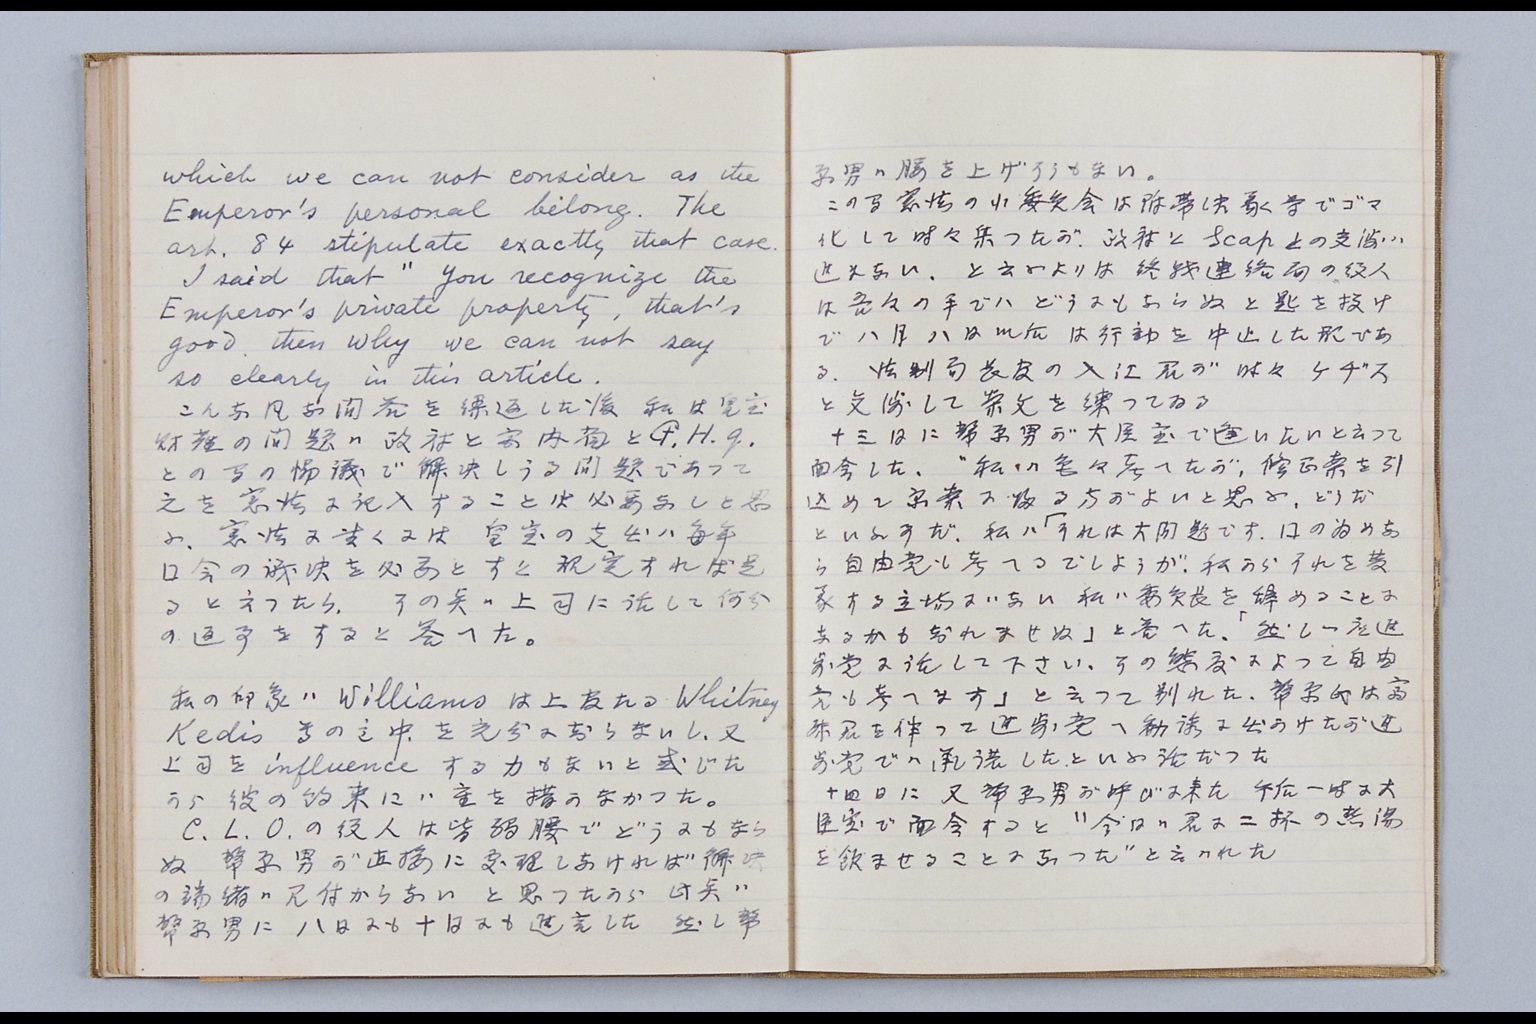 which we can not consider as the
Emperor's personal belong. The
art. 84 stipulate exactly that case.
I said that "You recognize the
Emperor's private property, that's
good. then why we can not say
so clearly in this article.
こんな風な問答を繰返した後 私は皇室
財産の問題ハ 政府と宮内省と G.H.q.
との間の協議で解決しうる問題であつて
之を憲法に記入することは必要なしと思
ふ、憲法に書くには 皇室の支出ハ毎年
国会の議決を必要とすと規定すれば足
ると云つたら、その点ハ上司に話して何分
の返事をすると答へた。
私の印象ハ Williams は上官たる Whitney
Kedis 等の意中を充分に知らないし、又
上司を influence する力もないと感じた
から 彼の約束にハ重を措かなかつた。
C.L.O. の役人は皆弱腰でどうにもなら
ぬ 幣原男が直接に処理しなければ解決
の端緒ハ見付からない と思つたから 此点ハ
幣原男に 八日にも十日にも進言した 然し幣
原男ハ腰を上げそうもない。
この間憲法の小委員会は附帯決議等でゴマ
化して時々集つたが、政府と Scap との交渉ハ
進まない、と云ふよりは 終戦連絡局の役人
は吾々の手でハ どうにもならぬ と匙を投げ
で八月八日以后は行動を中止した形であ
る、法制局長官の入江君が時々ケヂス
と交渉して案文を練つてゐる
十三日に幣原男が大臣室で逢いたいと云つて
面会した、"私ハ色々考へたが、修正案を引
込めて原案に帰る方がよいと思ふ、どうだ
といふすだ、私ハ「それは大問題です、国の為めな
ら自由党も考へるでしようが、私からそれを発
議する立場にハない 私ハ委員長を辞めることに
なるかも知れませぬ」と答へた、「然し一応進
歩党に話して下さい、その態度によつて自由
党も考へます」と云つて別れた、幣原氏は斎
藤君を伴つて進歩党へ勧誘に出かけたが進
歩党でハ承諾したといふ話だつた
十四日に 又幣原男が呼びに来た 午后一時に大
臣室で面会すると "今日ハ君に二杯の熱湯
を飲ませることになつた"と云ハれた